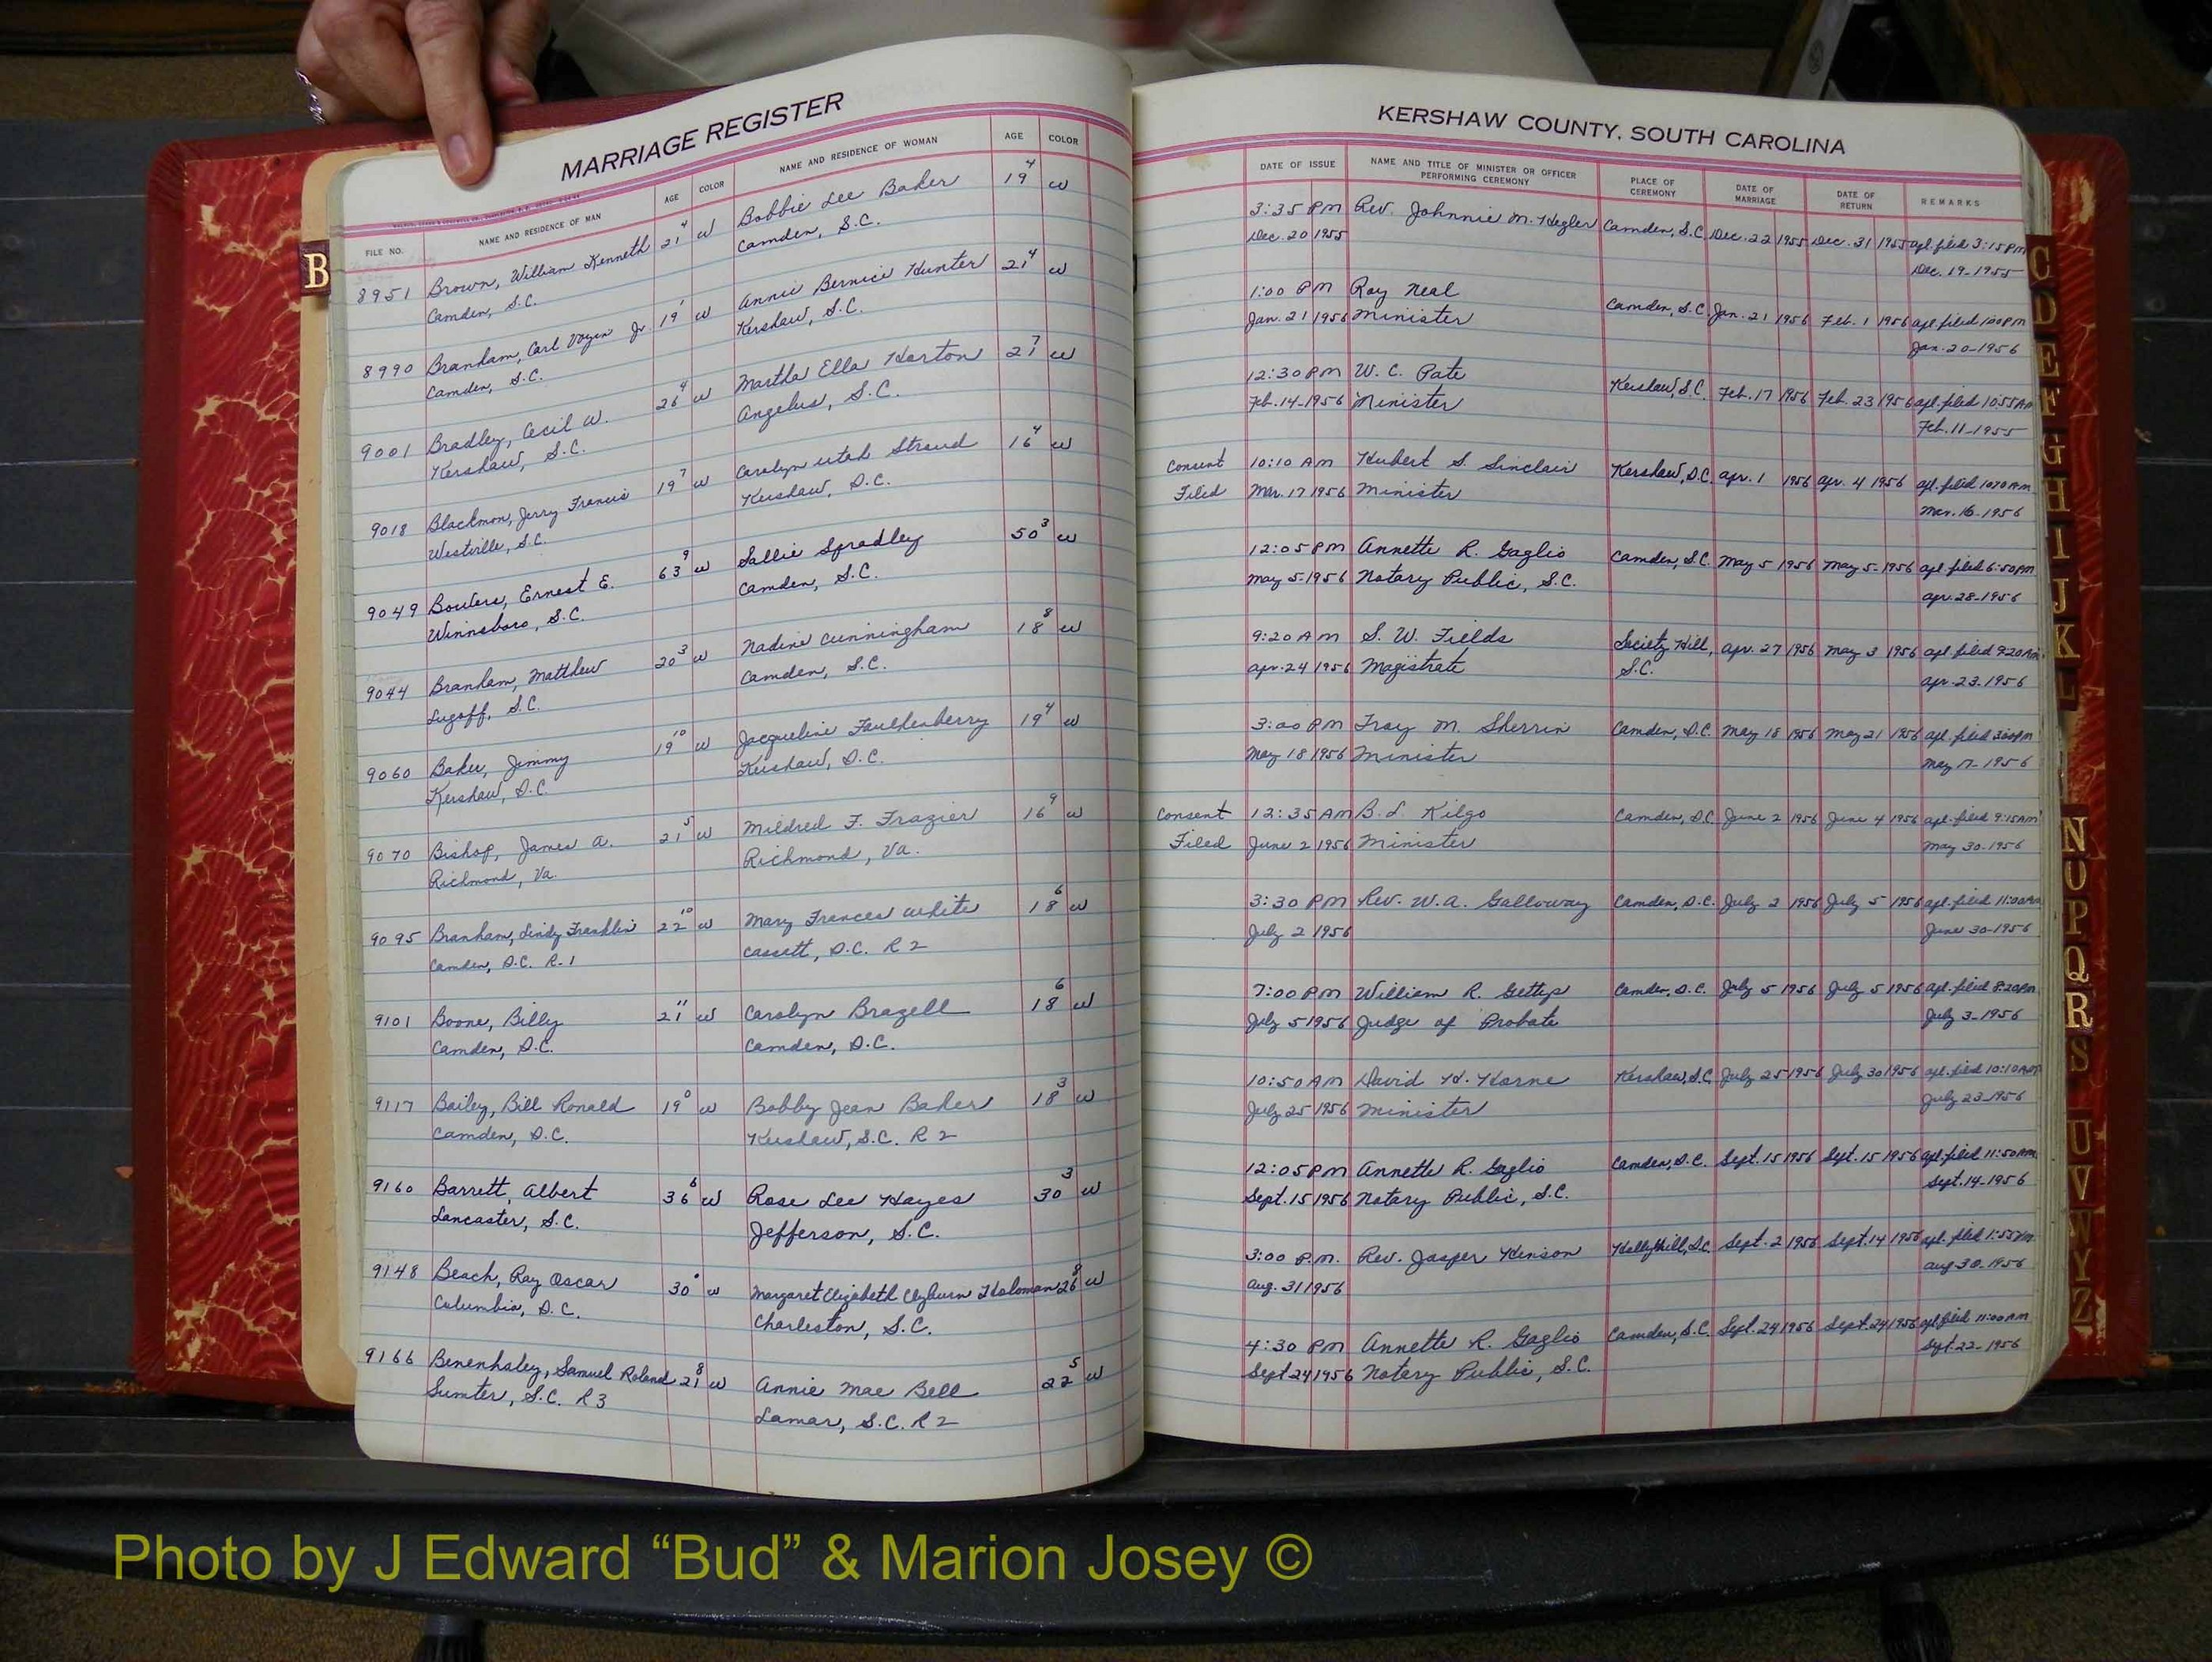 MARRIAGE REGISTER
FILE NO. NAME AND RESIDENCE OF MAN AGE COLOR NAME AND RESIDENCE OF WOMAN AGE COLOR
8951 Brown, William Kenneth 21 4 W Bobbie Lee Baker 19 4 W
Camden, S.C. Camden, S.C.
8990 Branham, Carl Jr. 19 W Annie Bernice Hunter 21 4 W
Camden, S.C. Kershaw, S.C.
9001 Bradley, Cecil W. 26 4 W Martha Ella Horton 21 7 W
Kershaw, S.C. Angelus, S.C.
9018 Blackmon, Jerry Francis 19 7 W Carolyn Utah Stroud 16 4 W
Westville, S.C. Kershaw, S.C.
9049 Bowers, Ernest E. 63 9 W Sallie Spradley 50 3 W
Winnsboro, S.C. Camden, S.C.
9044 Branham, Matthew 20 3 W Nadine Cunningham 18 8 W
Lugoff, S.C. Camden, S.C.
9060 Baker, Jimmy 19 10 W Jacqueline Faulkenberry 19 4 W
Kershaw, S.C. Kershaw, S.C.
9070 Bishop, James A. 21 5 W Mildred F. Frazier 16 9 W
Richmond, Va. Richmond, Va.
9095 Branham, Lindy Franklin 22 10 W Mary Frances White 18 6 W
Camden, S.C. R-1 Cassett, S.C. R 2
9101 Boone, Billy 21 11 W Carolyn Brazell 18 6 W
Camden, S.C. Camden, S.C.
9117 Bailey, Bill Ronald 19 0 W Bobby Jean Baker 18 3 W
Camden, S.C. Kershaw, S.C. R 2
9160 Barrett, Albert 36 6 W Rose Lee Hayes 30 3 W
Lancaster, S.C. Jefferson, S.C.
9148 Beach, Ray Oscar 30 W Margaret Elizabeth Clyburn Holoman 26 8 W
Columbia, S.C. Charleston, S.C.
9166 Benenhaley, Samuel Roland 21 8 W Annie Mae Bell 22 5 W
Sumter, S.C. R 3 Lamar, S.C. R 2
KERSHAW COUNTY, SOUTH CAROLINA
DATE OF ISSUE NAME AND TITLE OF MINISTER OR OFFICER PERFORMING CEREMONY PLACE OF CEREMONY DATE OF MARRIAGE DATE OF RETURN REMARKS
3:35 PM Rev. Johnnie M. Hegler Camden, S.C. Dec. 22 1955 Dec. 31 1955 apl. filed 3:15 PM
Dec. 20 1955 Dec. 19-1955
1:00 PM Roy Neal Camden, S.C. Jan. 21 1956 Feb. 1 1956 apl. filed 1:00 PM
Jan. 21 1956 Minister Jan. 20-1956
12:30 PM W. C. Pate Kershaw, S.C. Feb. 17 1956 Feb. 23 1956 apl. filed 10:55 AM
Feb. 14-1956 Minister Feb. 11-1955
Consent 10:10 AM Hubert S. Sinclair Kershaw, S.C. Apr. 1 1956 Apr. 4 1956 apl. filed 10:10 AM
Filed Mar. 17 1956 Minister Mar. 16-1956
12:05 PM Annette R. Gaglio Camden, S.C. May 5 1956 May 5-1956 apl. filed 6:50 PM
May 5-1956 Notary Public, S.C. Apr. 28-1956
9:20 AM S. W. Fields Society Hill, Apr. 27 1956 May 3 1956 apl. filed 9:20 AM
Apr. 24 1956 Magistrate S.C. Apr. 23-1956
3:00 PM Troy M. Sherrin Camden, S.C. May 18 1956 May 21 1956 apl. filed 3:00 PM
May 18 1956 Minister May 17-1956
Consent 12:35 AM B. L. Kilgo Camden, S.C. June 2 1956 June 4 1956 apl. filed 9:15 AM
Filed June 2 1956 Minister May 30-1956
3:30 PM Rev. W. A. Galloway Camden, S.C. July 2 1956 July 5 1956 apl. filed 11:00 AM
July 2 1956 June 30-1956
7:00 PM William R. Gettys Camden, S.C. July 5 1956 July 5 1956 apl. filed 8:20 PM
July 5 1956 Judge of Probate July 3-1956
10:50 AM David H. Horne Kershaw, S.C. July 25 1956 July 30 1956 apl. filed 10:10 AM
July 25 1956 Minister July 23-1956
12:05 PM Annette R. Gaglio Camden, S.C. Sept. 15 1956 Sept. 15 1956 apl. filed 11:50 AM
Sept. 15 1956 Notary Public, S.C. Sept. 14-1956
3:00 P.M. Rev. Jasper Hinson Hollyhill, S.C. Sept. 2 1956 Sept. 14 1956 apl. filed 1:55 PM
Aug. 31 1956 Aug 30-1956
4:30 PM Annette R. Gaglio Camden, S.C. Sept. 24 1956 Sept. 24 1956 apl. filed 11:00 AM
Sept 24 1956 Notary Public, S.C. Sept. 22-1956
B
C
D
E
F
G
H
I
J
K
L
N
O
P
Q
R
S
U
V
W
Y
Z
Photo by J Edward “Bud” & Marion Josey ©